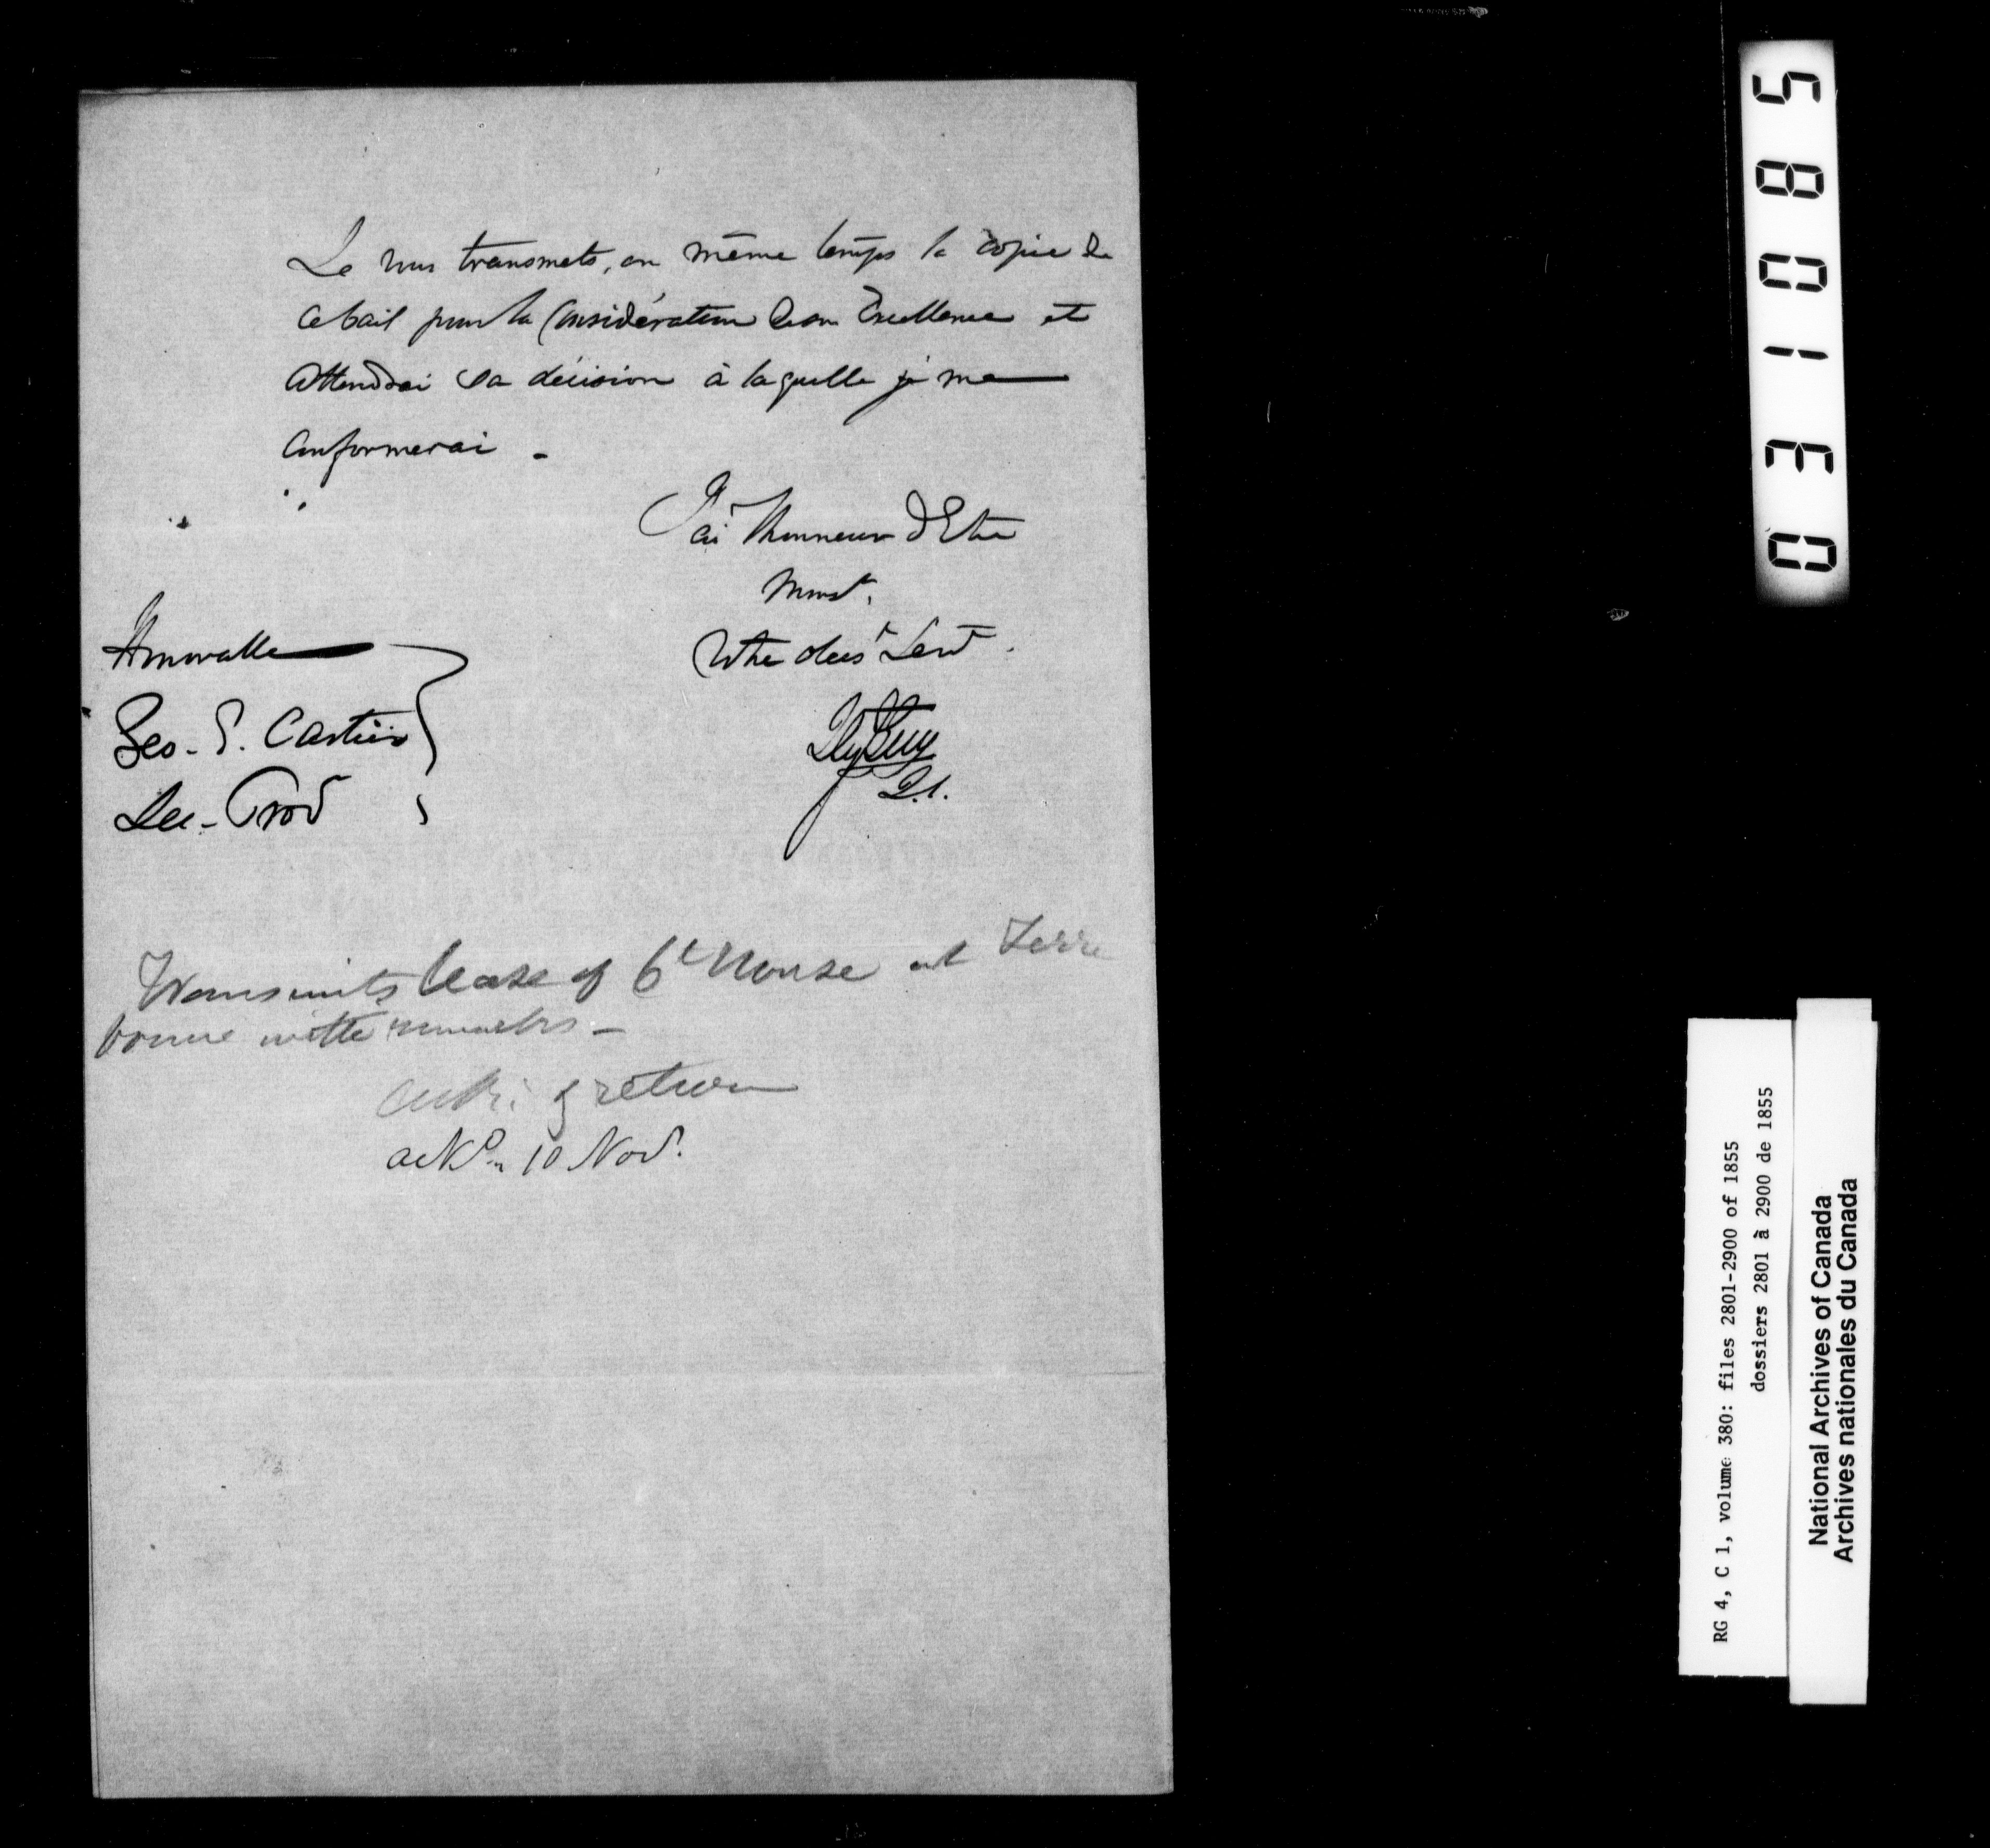 Je vous transmets, en même temps la copie de
ce bail pour la Considération de son Excellence et
attendrai sa décision à laquelle je me
Conformerai -
J'ai l'honneur d'Etre
Monsr.
Votre obeist Servt.
Honorable
Geo. E. Cartier
Sec. Prov
Transmits lease of Ct House at Terre
bonne with remarks -
return
ackd 10 Nov.
580130
RG 4, C 1, volume 380: files 2801-2900 of 1855
dossiers 2801 à 2900 de 1855
National Archives of Canada
Archives nationales du Canada